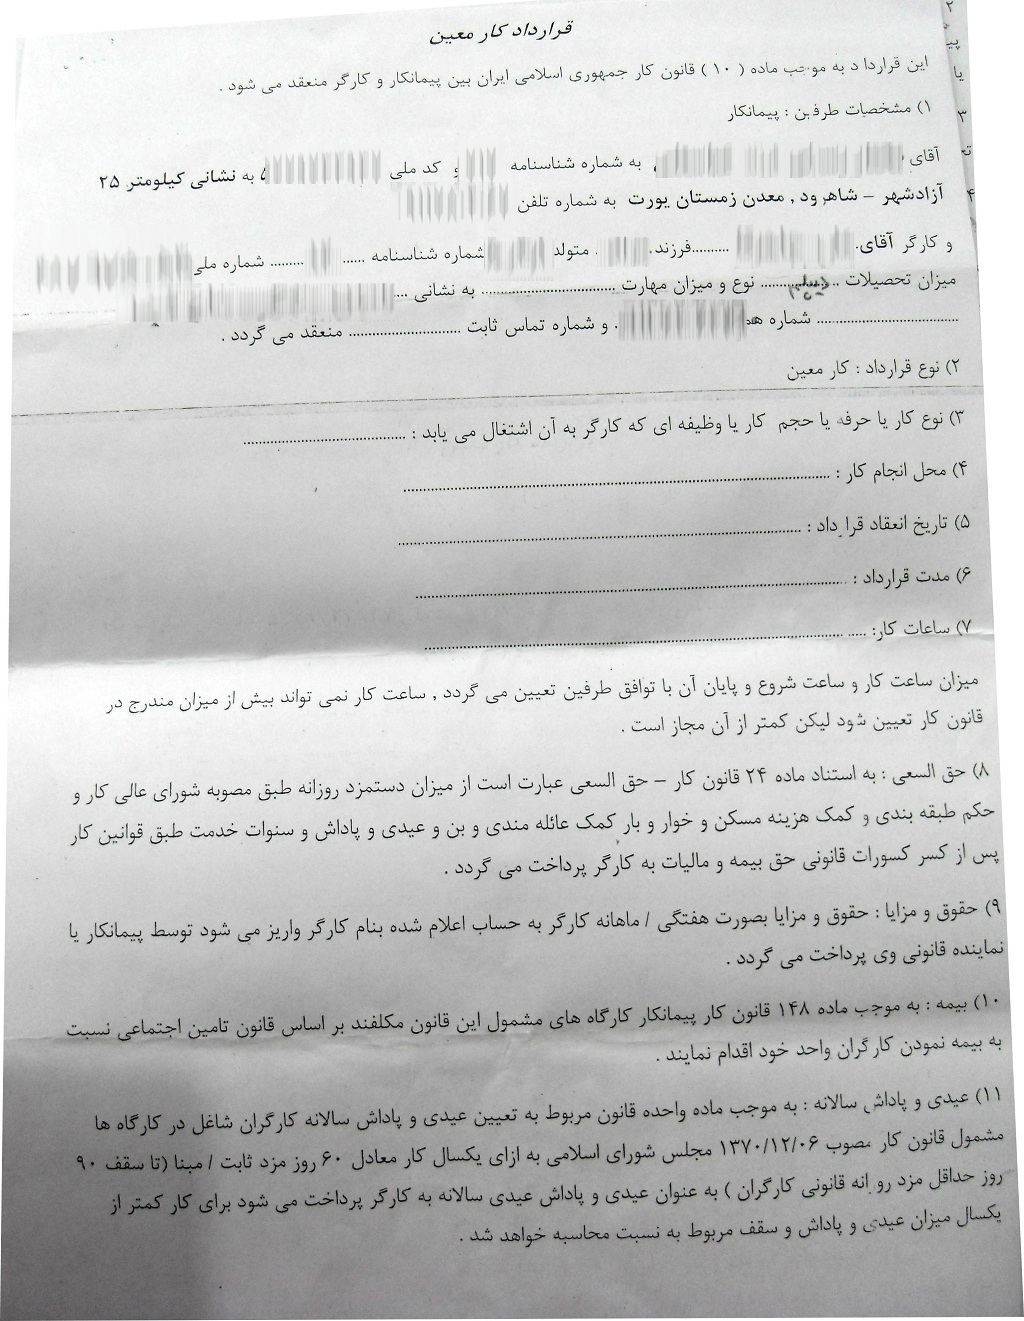 قرارداد کار معین
این قراردا د به موجب ماده ( ۱۰ ) قانون کار جمهوری اسلامی ایران بین پیمانکار و کارگر منعقد می شود .
۱) مشخصات طرفین : پیمانکار
آقای به شماره شناسنامه و کد ملی به نشانی کیلومتر ۲۵
آزادشهر – شاهرود , معدن زمستان یورت به شماره تلفن
و کارگر آقای. ..........فرزند. . متولد شماره شناسنامه ...... ......... شماره ملی
میزان تحصیلات ..دیپلم.......... نوع و میزان مهارت ................................ به نشانی ....
................................... شماره . و شماره تماس ثابت ........................... منعقد می گردد .
۲) نوع قرارداد : کار معین
۳) نوع کار یا حرفه یا حجم کار یا وظیفه ای که کارگر به آن اشتغال می یابد : ........................................
۴) محل انجام کار : ........................................................................................................
۵) تاریخ انعقاد قرارداد : ...................................................................................................
۶) مدت قرارداد : ..........................................................................................................
۷) ساعات کار: ..... .....................................................................................................
میزان ساعت کار و ساعت شروع و پایان آن با توافق طرفین تعیین می گردد , ساعت کار نمی تواند بیش از میزان مندرج در
قانون کار تعیین شود لیکن کمتر از آن مجاز است .
۸) حق السعی : به استناد ماده ۲۴ قانون کار – حق السعی عبارت است از میزان دستمزد روزانه طبق مصوبه شورای عالی کار و
حکم طبقه بندی و کمک هزینه مسکن و خوار و بار کمک عائله مندی و بن و عیدی و پاداش و سنوات خدمت طبق قوانین کار
پس از کسر کسورات قانونی حق بیمه و مالیات به کارگر پرداخت می گردد .
۹) حقوق و مزایا : حقوق و مزایا بصورت هفتگی / ماهانه کارگر به حساب اعلام شده بنام کارگر واریز می شود توسط پیمانکار یا
نماینده قانونی وی پرداخت می گردد .
۱۰) بیمه : به موجب ماده ۱۴۸ قانون کار پیمانکار کارگاه های مشمول این قانون مکلفند بر اساس قانون تامین اجتماعی نسبت
به بیمه نمودن کارگران واحد خود اقدام نمایند .
۱۱) عیدی و پاداش سالانه : به موجب ماده واحده قانون مربوط به تعیین عیدی و پاداش سالانه کارگران شاغل در کارگاه ها
مشمول قانون کار مصوب ۱۳۷۰/۱۲/۰۶ مجلس شورای اسلامی به ازای یکسال کار معادل ۶۰ روز مزد ثابت / مبنا (تا سقف ۹۰
روز حداقل مزد روزانه قانونی کارگران ) به عنوان عیدی و پاداش عیدی سالانه به کارگر پرداخت می شود برای کار کمتر از
یکسال میزان عیدی و پاداش و سقف مربوط به نسبت محاسبه خواهد شد .